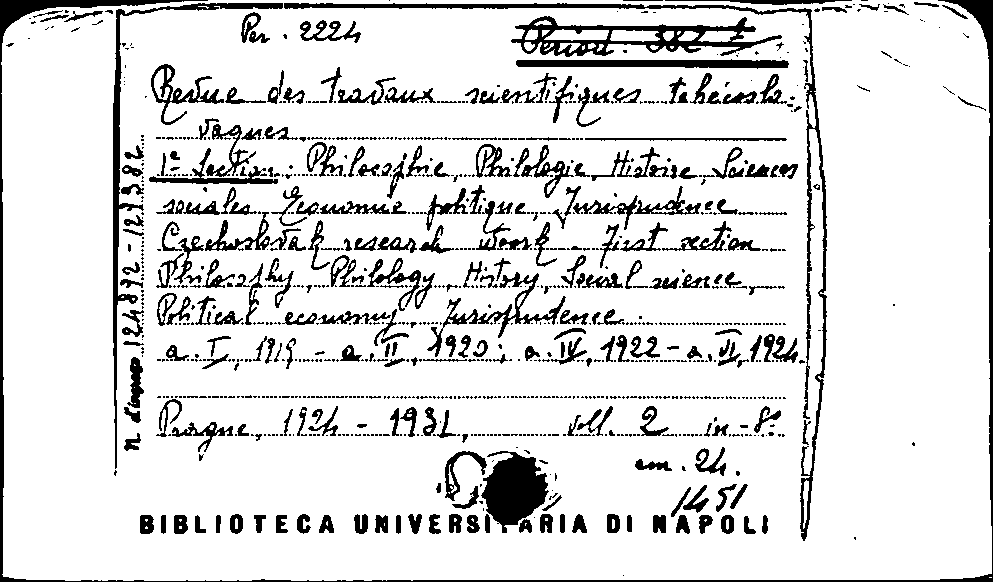 Per. 2224
Period. 382 1
Revue des travaux scientifiques tchécoslo-
vaques.
1e Section: Philosophie, Philologie, Histoire, Sciences
sociales, Economie politique, Jurisprudence
Czechoslovak research work - First section
Philosophy, Philology, History, Social science,
Political economy, Jurisprudence.
a. I, 1919 - a. II, 1920; a. IV, 1922 - a. VI, 1924.
Prague, 1924 - 1931, voll. 2 in-8º
cm. 24.
1451
BIBLIOTECA UNIVERSITARIA DI NAPOLI
n. d'ingresso